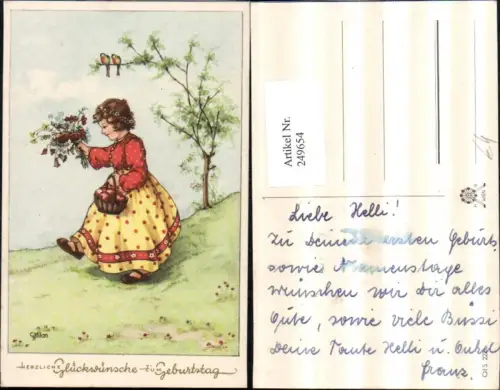 HERZLICHE Glückwünsche ZUM Geburtstag
Artikel Nr.
249654
Liebe Helli!
Zu Deinem ersten Geburts
sowie Namenstage
wünschen wir Dir alles
Gute, sowie viele Bussi
Deine Tante Helli u. Onkel
Franz.